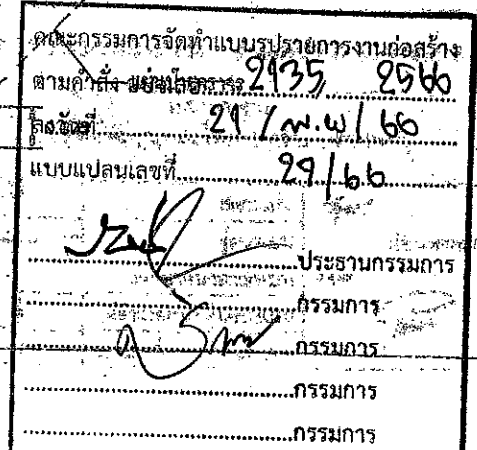 คณะกรรมการจัดทำแบบรูปรายการงานก่อสร้าง
ตามคำสั่ง 2135 2566
ลงวันที่ 21 / พ.ย / 66
แบบแปลนเลขที่ 29/66
ประธานกรรมการ
กรรมการ
กรรมการ
กรรมการ
กรรมการ